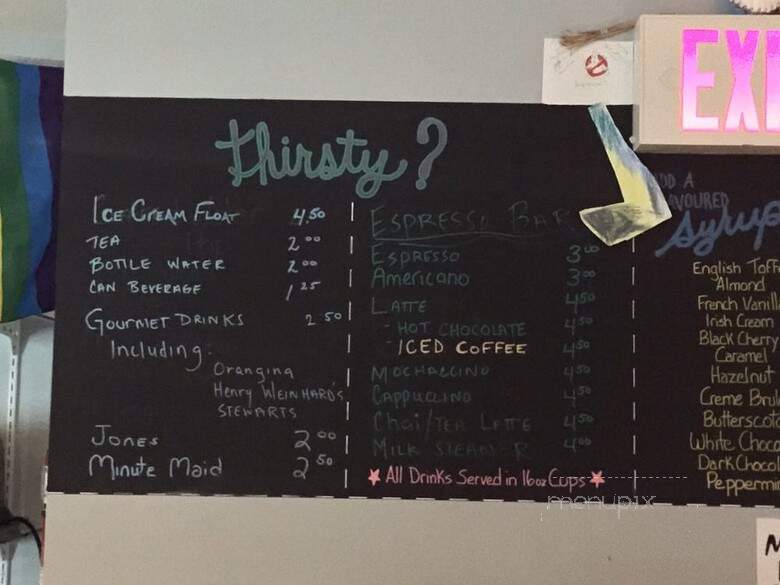 EXI
Thirsty?
ICE CREAM FLOAT 4.50
TEA 2.00
BOTTLE WATER 2.00
CAN BEVERAGE 1.25
GOURMET DRINKS 2.50
Including:
Orangina
Henry WEINHARD'S
STEWARTS
JONES 2.00
Minute Maid 2.50
ESPRESSO BAR
ESPRESSO 3.00
Americano 3.00
LATTE 4.50
- HOT CHOCOLATE 4.50
- ICED COFFEE 4.50
MOCHACCINO 4.50
CAPPUCCINO 4.50
Chai/TEA LATTE 4.50
MILK STEAMER 4.00
All Drinks Served in 16oz Cups
DD A
AVOURED
Syrup
English Toffe
Almond
French Vanill
Irish Cream
Black Cherry
Caramel
Hazelnut
Creme Brul
Buttersco
White Choco
Dark Chocol
Peppermin
menupix
M